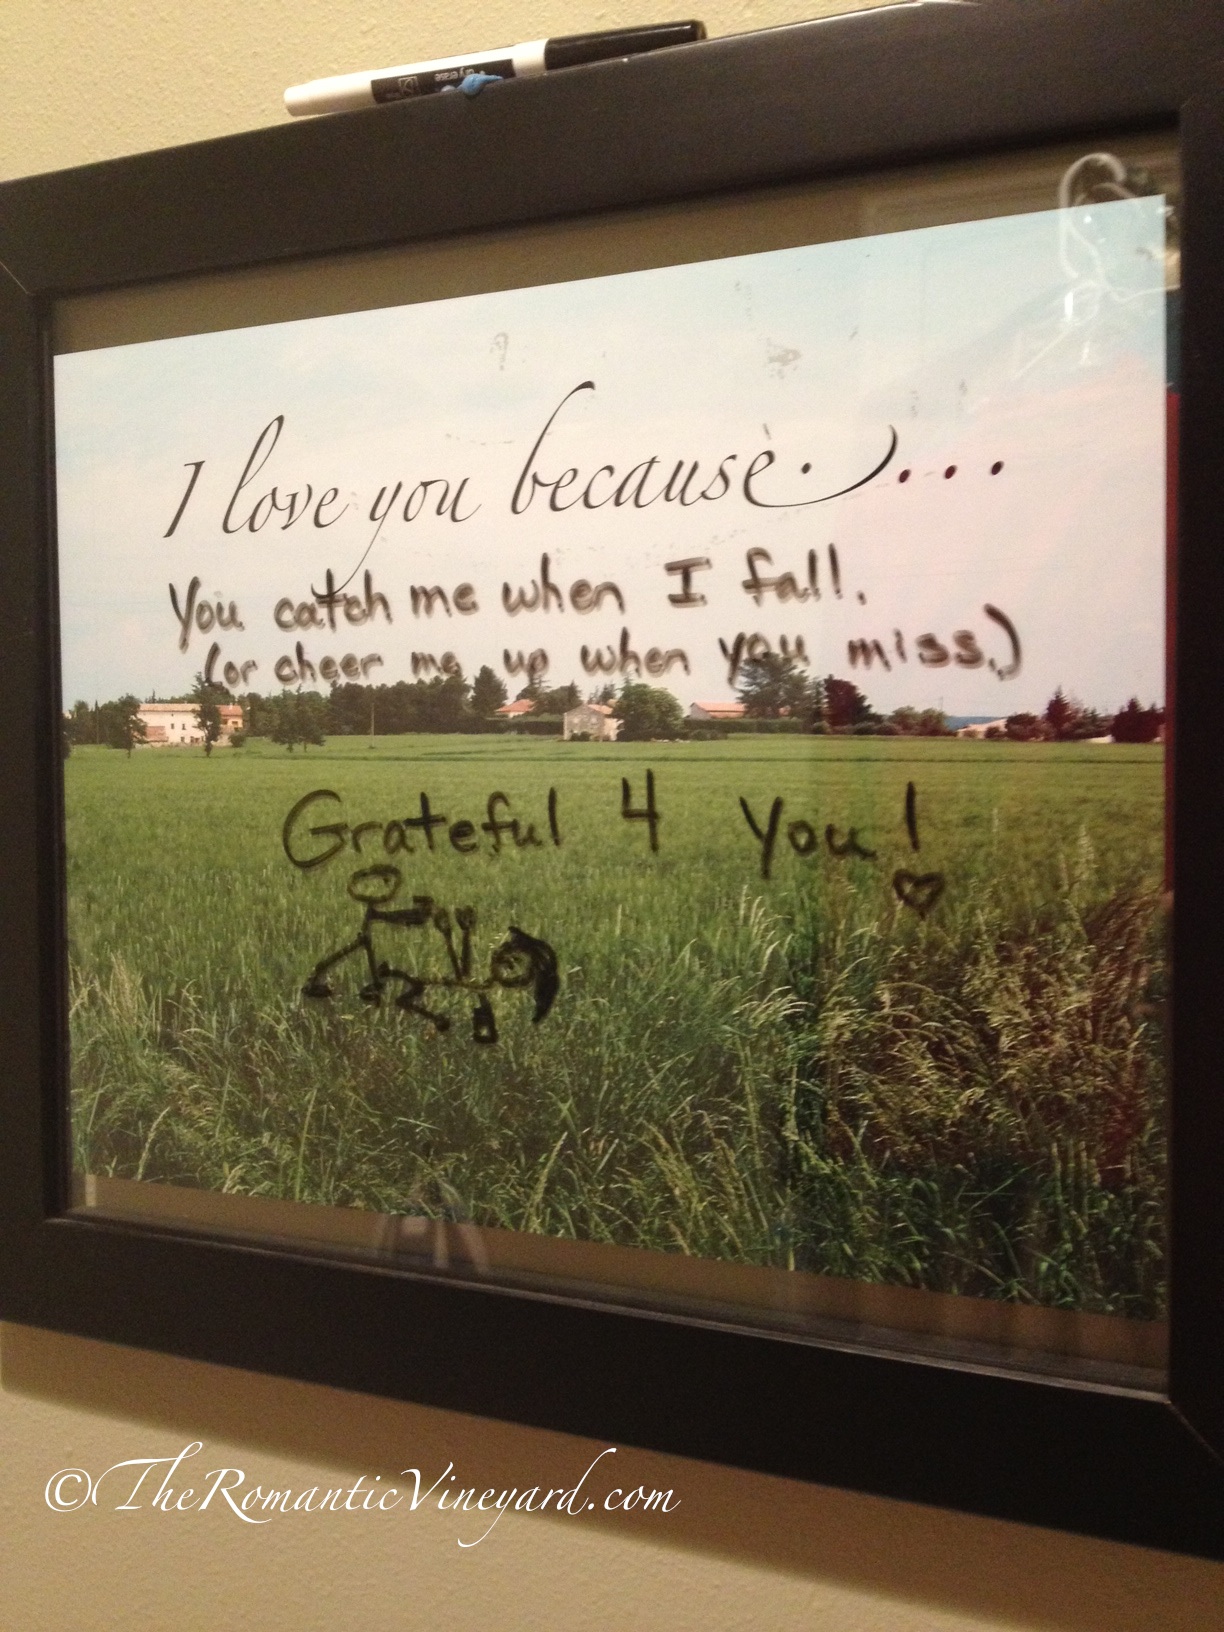 dry erase
I love you because....
You catch me when I fall.
(or cheer me up when you miss.)
Grateful 4 You!
©TheRomanticVineyard.com